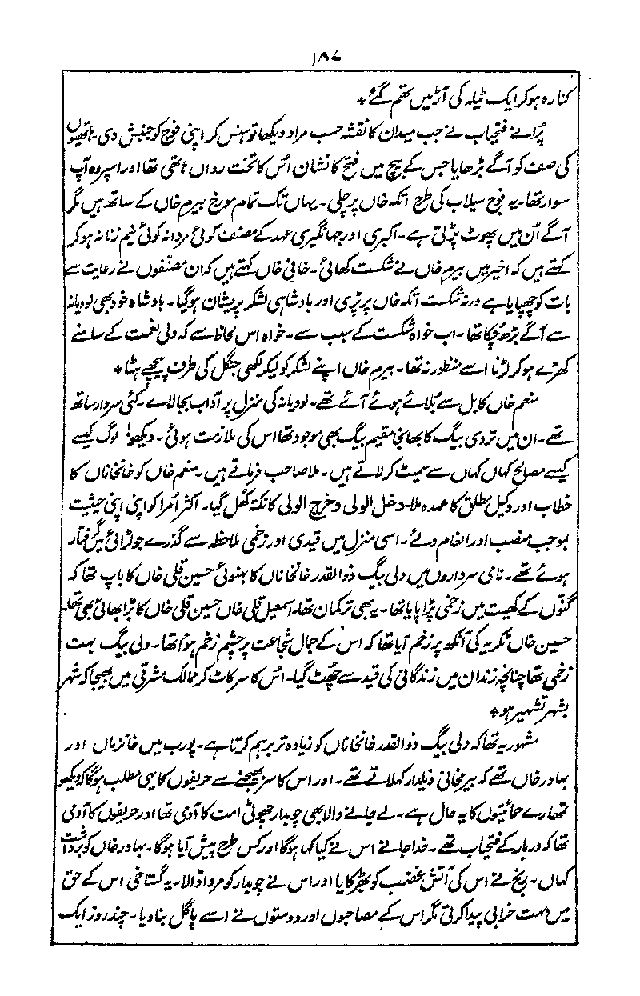 ۱۸۷
کنارہ ہوکر ایک ٹیلہ کی آڑ میں تھم گئے *
پُرانے فتحیاب نے جب میدان کا نقشہ حسب مراد دیکھا تو ہنس کر اپنی فوج کو جنبش دی۔ ہاتھیوں
کی صف کو آگے بڑھایا جس کے بیچ میں فتح کا نشان اُس کا تخت رواں ہاتھی تھا اور اسپر وہ آپ
سوار تھا۔ یہ فوج سیلاب کی طرح اتکہ خاں پر چلی۔ یہاں تک تمام مورخ بیرم خاں کے ساتھ ہیں مگر
آگے اُن میں پھوٹ پڑتی ہے۔ اکبری اور جہانگیری عہد کے مصنف کوئی مردانہ کوئی نیم زنانہ ہوکر
کہتے ہیں کہ اخیر میں بیرم خاں نے شکست کھائی۔ خافی خاں کہتے ہیں کہ ان مصنفوں نے رعایت سے
بات کو چھپایا ہے ورنہ شکست اتکہ خاں پر پڑی اور بادشاہی لشکر پریشان ہوگیا۔ بادشاہ خود بھی لودیانہ
سے آگے بڑھ چکا تھا۔ اب خواہ شکست کے سبب سے۔ خواہ اس لحاظ سے کہ ولی نعمت کے سامنے
کھڑے ہوکر لڑنا اسے منظور نہ تھا۔ بیرم خاں اپنے لشکر کو لیکر لکھی جنگل کی طرف پیچھے ہٹا *
منعم خاں کابل سے بلائے ہوئے آئے تھے۔ لودیانہ کی منزل پر آداب بجالائے۔ کئی سردار ساتھ
تھے۔ ان میں تردی بیگ کا بھانجا مقیم بیگ بھی موجود تھا اس کی ملازمت ہوئی۔ دیکھو! لوگ کیسے
کیسے مصالح کہاں کہاں سے سمیٹ کر لاتے ہیں۔ ملا صاحب فرماتے ہیں۔ منعم خاں کو خانخاناں کا
خطاب اور وکیل مطلق کا عہدہ ملا۔ دخل الولی و خرج الولی کا نکتہ کھل گیا۔ اکثر اُمرا کو اپنی اپنی حیثیت
بموجب منصب اور انعام دئے۔ اسی منزل میں قیدی اور زخمی ملاحظہ سے گذرے جو لڑائی میں گرفتار
ہوئے تھے۔ نامی سرداروں میں ولی بیگ ذوالقدر خانخاناں کا بہنوئی حسین قلی خاں کا باپ تھا کہ
گنّوں کے کھیت میں زخمی پڑا پایا تھا۔ یہ بھی ترکمان تھا۔ اسمٰعیل قلی خاں حسین قلی خاں کا بڑا بھائی بھی تھا۔
حسین خاں ٹکریہ کی آنکھ پر زخم آیا تھا کہ اس کے جمال شجاعت پر چشم زخم ہوا تھا۔ ولی بیگ بہت
زخمی تھا چنانچہ زندان میں زندگانی کی قید سے چھٹ گیا۔ اس کا سر کاٹ کر ممالک مشرقی میں بھیجا کہ شہر
بشہر تشہیر ہو *
مشہور یہ تھا کہ ولی بیگ ذوالقدر خانخاناں کو زیادہ تر برہم کرتا ہے۔ پورب میں خانزماں اور
بہادر خاں تھے کہ بیرمخانی ذیلدار کہلاتے تھے۔ اور اس کا سر بھیجنے سے حریفوں کا یہی مطلب ہوگا کہ دیکھو
تمھارے حمائتیوں کا یہ حال ہے۔ لے جانے والا بھی چوبدار چھوٹی امت کا آدمی تھا اور حریفوں کا آدمی
تھا کہ دربار کے فتحیاب تھے۔ خدا جانے اس نے کیا کہا ہوگا اور کس طرح پیش آیا ہوگا۔ بہادر خاں کو برداشت
کہاں۔ رنج نے اس کی آتش غضب کو بھڑکایا اور اس نے چوبدار کو مروا ڈالا۔ یہ گستاخی اس کے حق
میں بہت خرابی پیدا کرتی مگر اس کے مصاحبوں اور دوستوں نے اسے پاگل بنا دیا۔ چند روز ایک